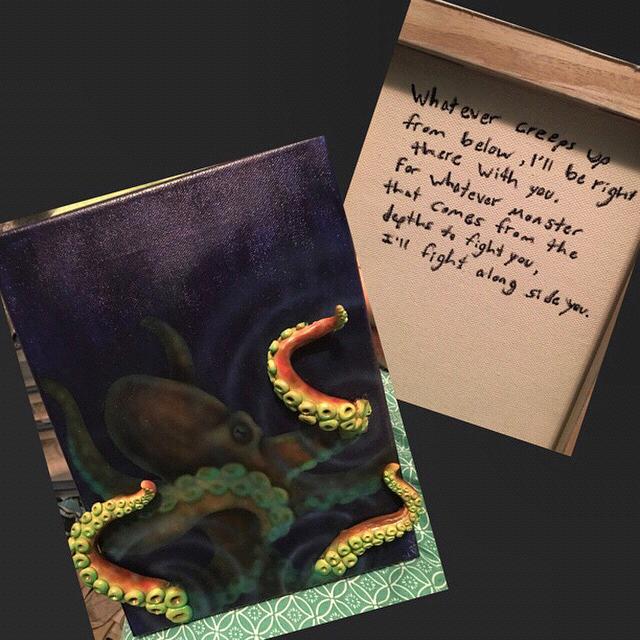 Whatever creeps up
from below, I'll be right
there with you.
For whatever monster
that comes from the
depths to fight you,
I'll fight along side you.